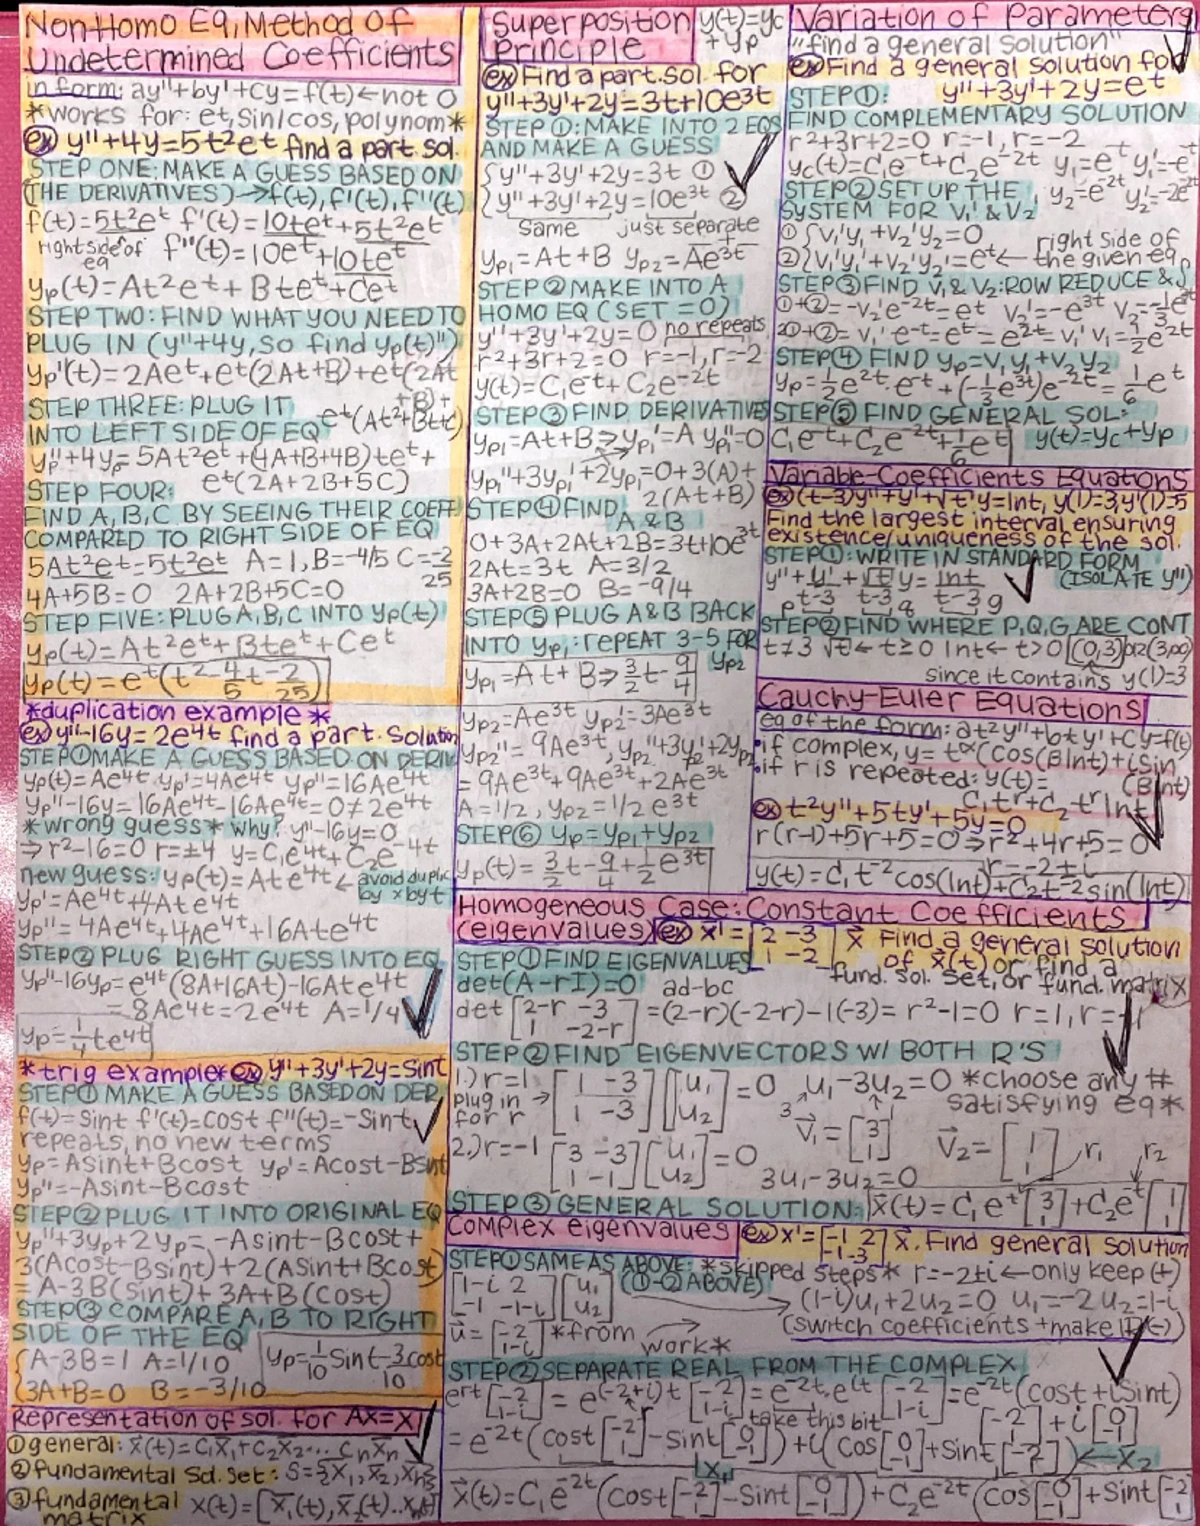 NonHomo Eq, Method Of
Undetermined Coefficients
in form: ay"+by'+cy=f(t)←not 0
*works for: et, sin/cos, polynom*
ex y"+4y=5t²et find a part. sol.
STEP ONE: MAKE A GUESS BASED ON
(THE DERIVATIVES)→f(t), f'(t), f"(t)
f(t)=5t²et f'(t)=10tet+5t²et
right side of eq f"(t)=10et+10tet
yp(t)=At²et+Btet+Cet
STEP TWO: FIND WHAT YOU NEED TO
PLUG IN (y"+4y, so find yp(t)")
yp'(t)=2Aet+et(2At+B)+et(2At
+B)+
STEP THREE: PLUG IT et(At²+Bt+c)
INTO LEFT SIDE OF EQ
yp"+4yp=5At²et+(4A+B+4B)tet+
et(2A+2B+5C)
STEP FOUR:
FIND A, B, C BY SEEING THEIR COEFF
COMPARED TO RIGHT SIDE OF EQ
5At²et=5t²et A=1, B=-4/5 C=-2/25
4A+5B=0 2A+2B+5C=0
STEP FIVE: PLUG A, B, C INTO yp(t)
yp(t)=At²et+Btet+Cet
yp(t)=et(t²-4/5t-2/25)
*duplication example*
ex y"-16y=2e4t find a part. solution
STEP ① MAKE A GUESS BASED ON DERIV
yp(t)=Ae4t yp'=4Ae4t yp"=16Ae4t
yp"-16y=16Ae4t-16Ae4t=0≠2e4t
*wrong guess* why? y"-16y=0
⇒r²-16=0 r=±4 y=C1e4t+C2e-4t
new guess: yp(t)=Ate4t ← avoid duplic by × by t
yp'=Ae4t+4Ate4t
yp"=4Ae4t+4Ae4t+16Ate4t
STEP ② PLUG RIGHT GUESS INTO EQ
yp"-16yp=e4t(8A+16At)-16Ate4t
=8Ae4t=2e4t A=1/4
yp=1/4te4t
*trig example* ex y"+3y'+2y=sint
STEP ① MAKE A GUESS BASED ON DER.
f(t)=sint f'(t)=cost f"(t)=-sint
repeats, no new terms
yp=Asint+Bcost yp'=Acost-Bsint
yp"=-Asint-Bcost
STEP ② PLUG IT INTO ORIGINAL EQ
yp"+3yp+2yp=-Asint-Bcost+
3(Acost-Bsint)+2(Asint+Bcost)
=A-3B(sint)+3A+B(cost)
STEP ③ COMPARE A, B TO RIGHT
SIDE OF THE EQ
{A-3B=1 A=1/10 yp=1/10sint-3/10cost
{3A+B=0 B=-3/10
Representation of sol. for Ax=x'
① general: x(t)=C1x1+C2x2... Cnxn
② fundamental Sol. Set: S={x1, x2, xn}
③ fundamental matrix x(t)=[x1(t), x2(t)..xn(t)]
Superposition Principle y(t)=yc+yp
ex Find a part. sol. for
y"+3y'+2y=3t+10e3t
STEP ①: MAKE INTO 2 EQS
AND MAKE A GUESS
{y"+3y'+2y=3t ①
{y"+3y'+2y=10e3t ②
same just separate
yp1=At+B yp2=Ae3t
STEP ② MAKE INTO A
HOMO EQ (SET =0)
y"+3y'+2y=0 no repeats
r²+3r+2=0 r=-1, r=-2
y(t)=C1e-t+C2e-2t
STEP ③ FIND DERIVATIVES
yp1=At+B⇒yp1'=A yp1"=0
yp1"+3yp1'+2yp1=0+3(A)+
2(At+B)
STEP ④ FIND A & B
0+3A+2At+2B=3t+10e3t
2At=3t A=3/2
3A+2B=0 B=-9/4
STEP ⑤ PLUG A&B BACK
INTO yp1: repeat 3-5 FOR yp2
yp1=At+B⇒3/2t-9/4
yp2=Ae3t yp2'=3Ae3t
yp2"=9Ae3t, yp2"+3yp2'+2yp2
=9Ae3t+9Ae3t+2Ae3t
A=1/2, yp2=1/2e3t
STEP ⑥ yp=yp1+yp2
yp(t)=3/2t-9/4+1/2e3t
Variation of Parameters
"find a general solution"
ex Find a general solution for
STEP ①: y"+3y'+2y=et
FIND COMPLEMENTARY SOLUTION
r²+3r+2=0 r=-1, r=-2
yc(t)=C1e-t+C2e-2t y1=e-t y1'=-e-t
STEP ② SET UP THE y2=e-2t y2'=-2e-2t
SYSTEM FOR V1' & V2
① {V1'y1+V2'y2=0 right side of
② {V1'y1'+V2'y2'=et← the given eq
STEP ③ FIND V1 & V2: ROW REDUCE & S
①+②=-V2'e-2t=et V2'=-e3t V2=-1/3e3t
2①+②=V1'e-t=et=e2t=V1' V1=1/2e2t
STEP ④ FIND yp=V1y1+V2y2
yp=1/2e2t·e-t+(-1/3e3t)e-2t=1/6et
STEP ⑤ FIND GENERAL SOL:
C1e-t+C2e-2t+1/6et y(t)=yc+yp
Variable-Coefficients Equations
ex (t-3)y"+y'+√t y=lnt, y(1)=3, y'(1)=5
Find the largest interval ensuring
existence/uniqueness of the sol.
STEP ①: WRITE IN STANDARD FORM
(ISOLATE y")
y"+y'/t-3+√t/t-3 y=lnt/t-3
p q g
STEP ② FIND WHERE P, Q, G ARE CONT
t≠3 √t←t≥0 lnt←t>0 (0,3) or (3,∞)
since it contains y(1)=3
Cauchy-Euler Equations
eq of the form: at²y"+bty'+Cy=f(t)
• if complex, y=tα(cos(Blnt)+isin
(Blnt)
• if r is repeated: y(t)=
C1tr+C2trlnt
ex t²y"+5ty'+5y=0
r(r-1)+5r+5=0⇒r²+4r+5=0
r=-2±i
y(t)=C1t-2cos(lnt)+C2t-2sin(lnt)
Homogeneous Case: Constant Coefficients
(eigenvalues) ex x'=[2 -3 1 -2]x Find a general solution
of x(t) or find a
fund. sol. set, or fund. matrix
STEP ① FIND EIGENVALUES
det(A-rI)=0 ad-bc
det [2-r -3 1 -2-r]=(2-r)(-2-r)-1(-3)=r²-1=0 r=1, r=-1
STEP ② FIND EIGENVECTORS W/ BOTH R'S
1.) r=1 plug in for r → [1 -3 1 -3][u1 u2]=0 u1-3u2=0 *choose any #
satisfying eq*
3 1 v1=[3 1] v2=[1 1] r1 r2
2.) r=-1 [3 -3 1 -1][u1 u2]=0 3u1-3u2=0
STEP ③ GENERAL SOLUTION: x(t)=C1et[3 1]+C2e-t[1 1]
Complex eigenvalues ex x'=[-1 2 -1 -3]x. Find general solution
STEP ① SAME AS ABOVE: *skipped steps* r=-2±i←only keep (+)
(①-② ABOVE)
[1-i 2 -1 -1-i][u1 u2] → (1-i)u1+2u2=0 u1=-2 u2=1-i
(switch coefficients + make 1 (-))
u=[-2 1-i] *from work*
STEP ② SEPARATE REAL FROM THE COMPLEX
ert[-2 1-i]=e(-2+i)t[-2 1-i]=e-2t·eit[-2 1-i]=e-2t(cost+isint)
take this bit [-2 1]+i[0 -1]
=e-2t(cost[-2 1]-sint[0 -1])+i(cos[0 -1]+sint[-2 1])←x2
x1
x(t)=C1e-2t(cost[-2 1]-sint[0 -1])+C2e-2t(cos[0 -1]+sint[-2 1]